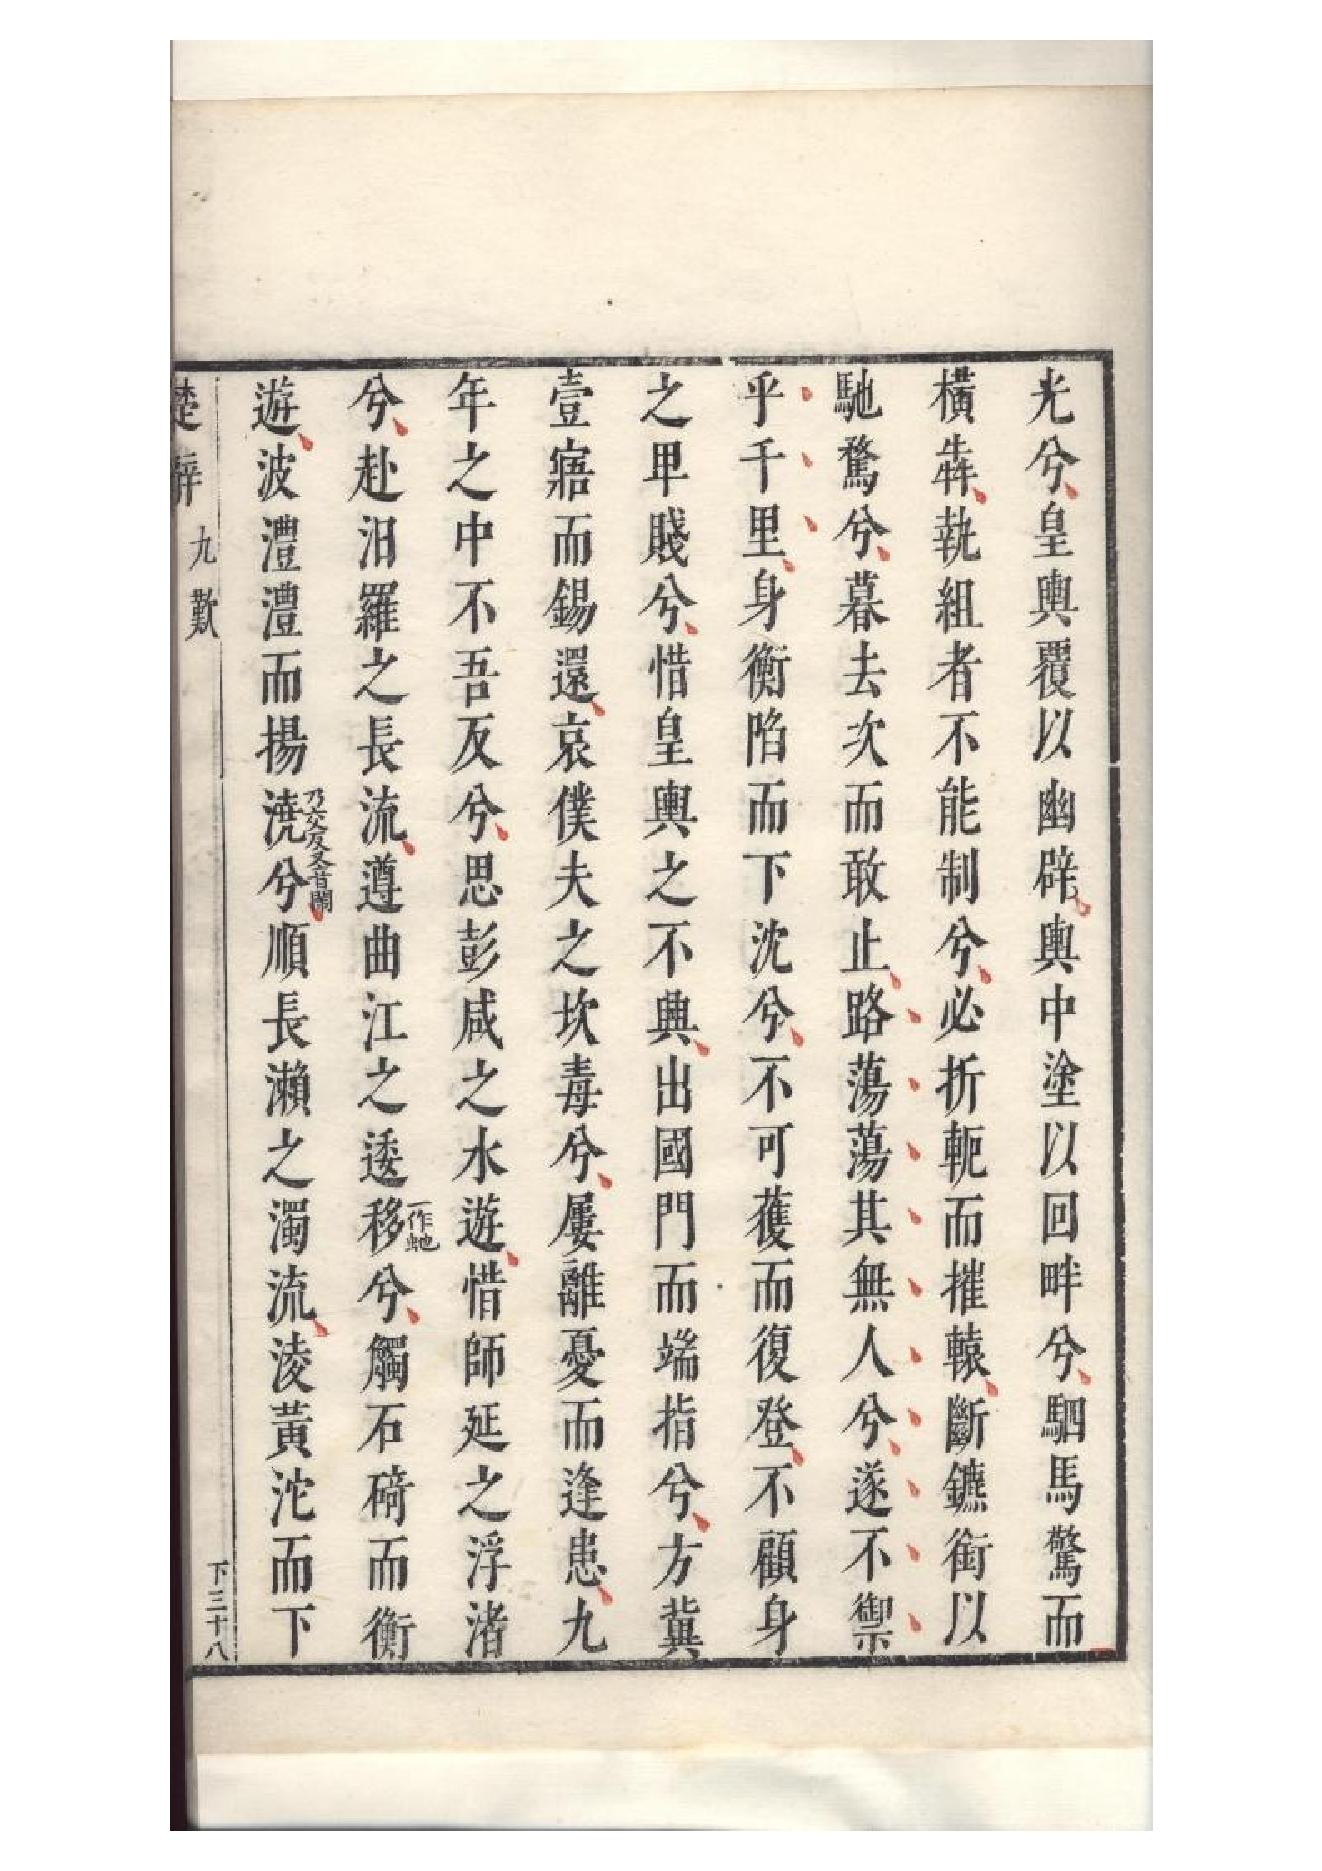 光兮皇輿覆以幽辟輿中塗以回畔兮駟馬驚而
橫犇執組者不能制兮必折軛而摧轅斷鑣銜以
馳騖兮暮去次而敢止路蕩蕩其無人兮遂不禦
乎千里身衡陷而下沈兮不可獲而復登不顧身
之卑賤兮惜皇輿之不興出國門而端指兮方冀
壹寤而錫還哀僕夫之坎毒兮屢離憂而逢患九
年之中不吾反兮思彭咸之水遊惜師延之浮渚
兮赴汨羅之長流遵曲江之逶移一作虵兮觸石碕而衡
遊波灃灃而揚澆乃交反又音鬧兮順長瀨之濁流淩黃沱而下
楚辭 九歎 下三十八